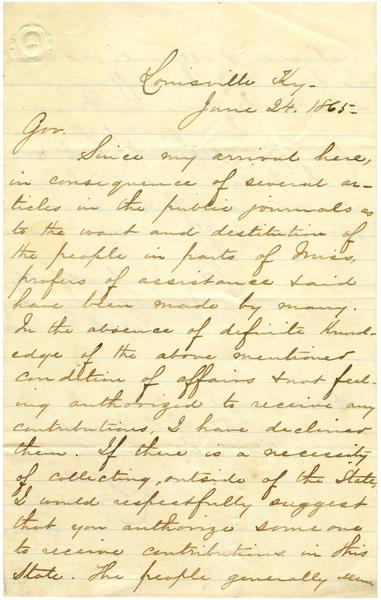 Louisville Ky-
June 24. 1865-
Gov.
Since my arrival here,
in consequence of several ar-
ticles in the public journals as
to the want and destitution of
the people in parts of Miss,
profers of assistance & aid
have been made by many.
In the absence of definite knowl-
edge of the above mentioned
condition of affairs & not feel-
ing authorized to receive any
contributions, I have declined
them. If there is a necessity
of collecting, outside of the State,
I would respectfully suggest
that you authorize some one
to receive contributions in this
State. The people generally seem